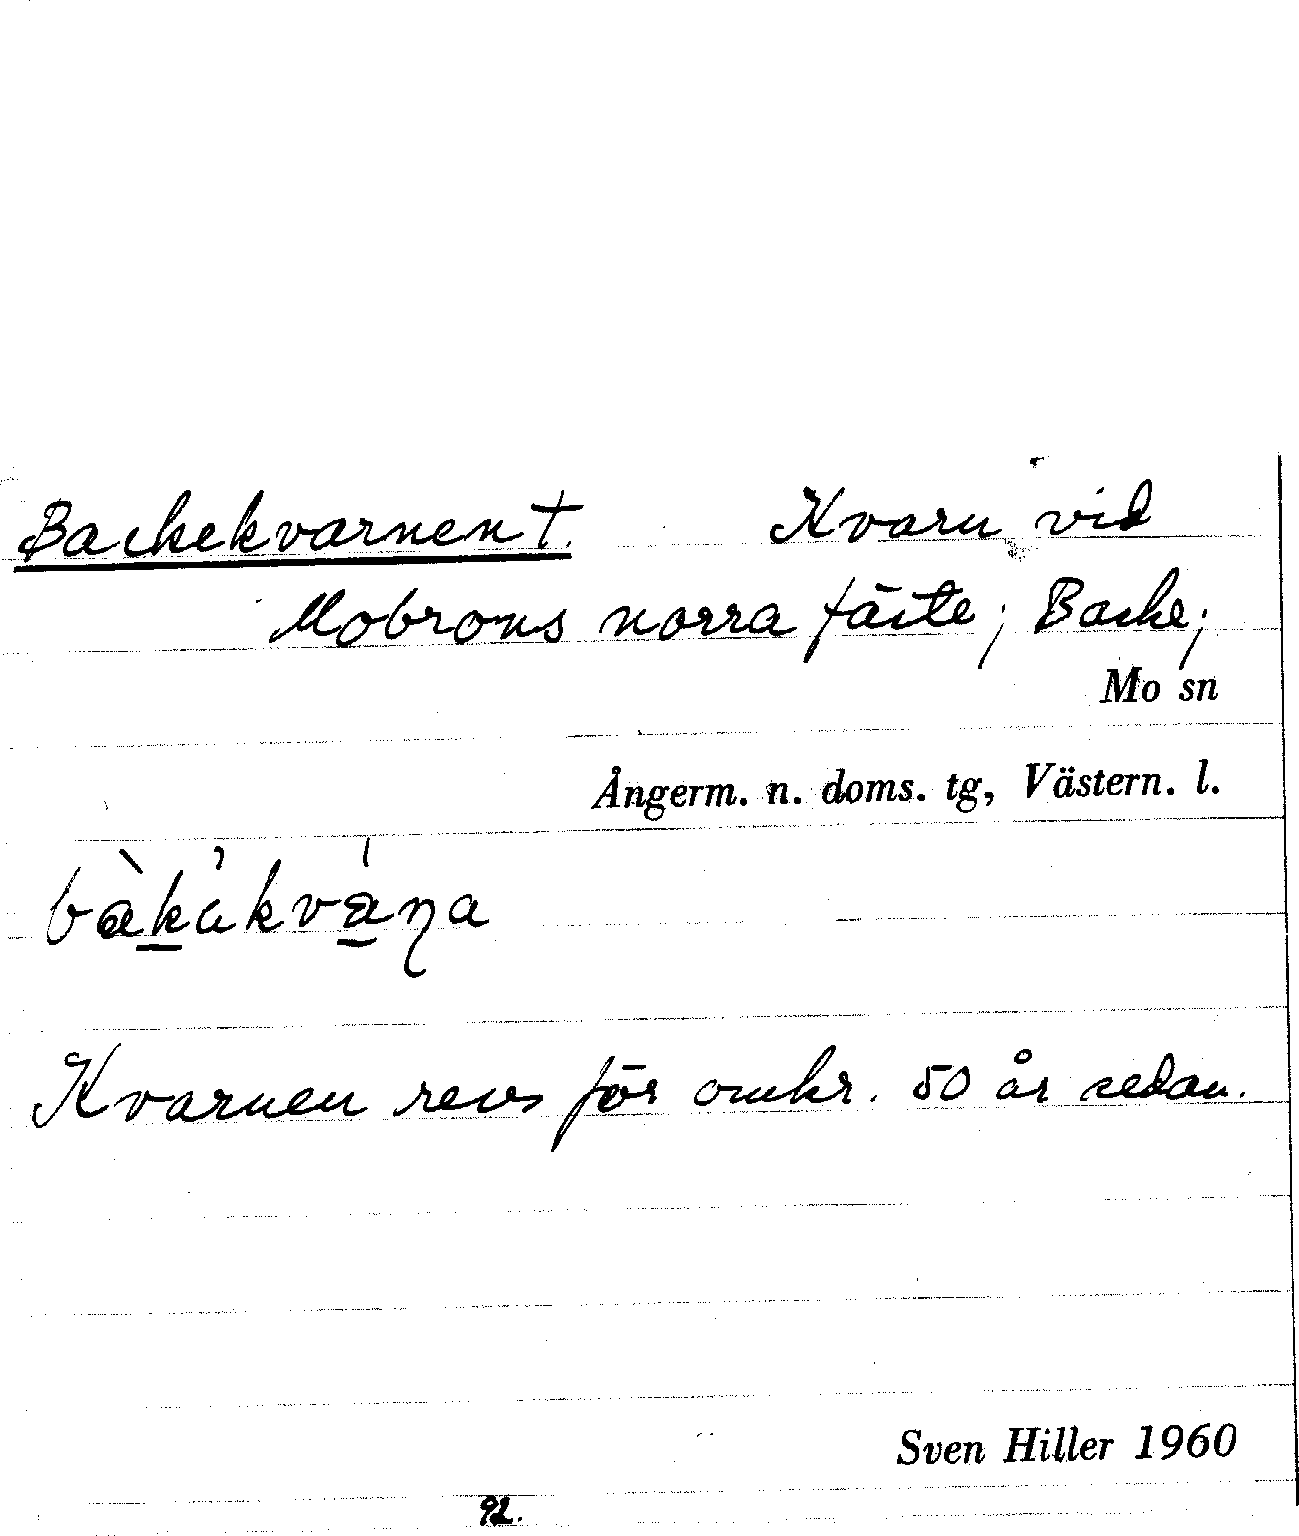 Backekvarnen †. Kvarn vid
Mobrons norra fäste; Backe;
Mo sn
Ångerm. n. doms. tg, Västern. l.
Kvarnen revs för omkr. 50 år sedan.
Sven Hiller 1960
92.